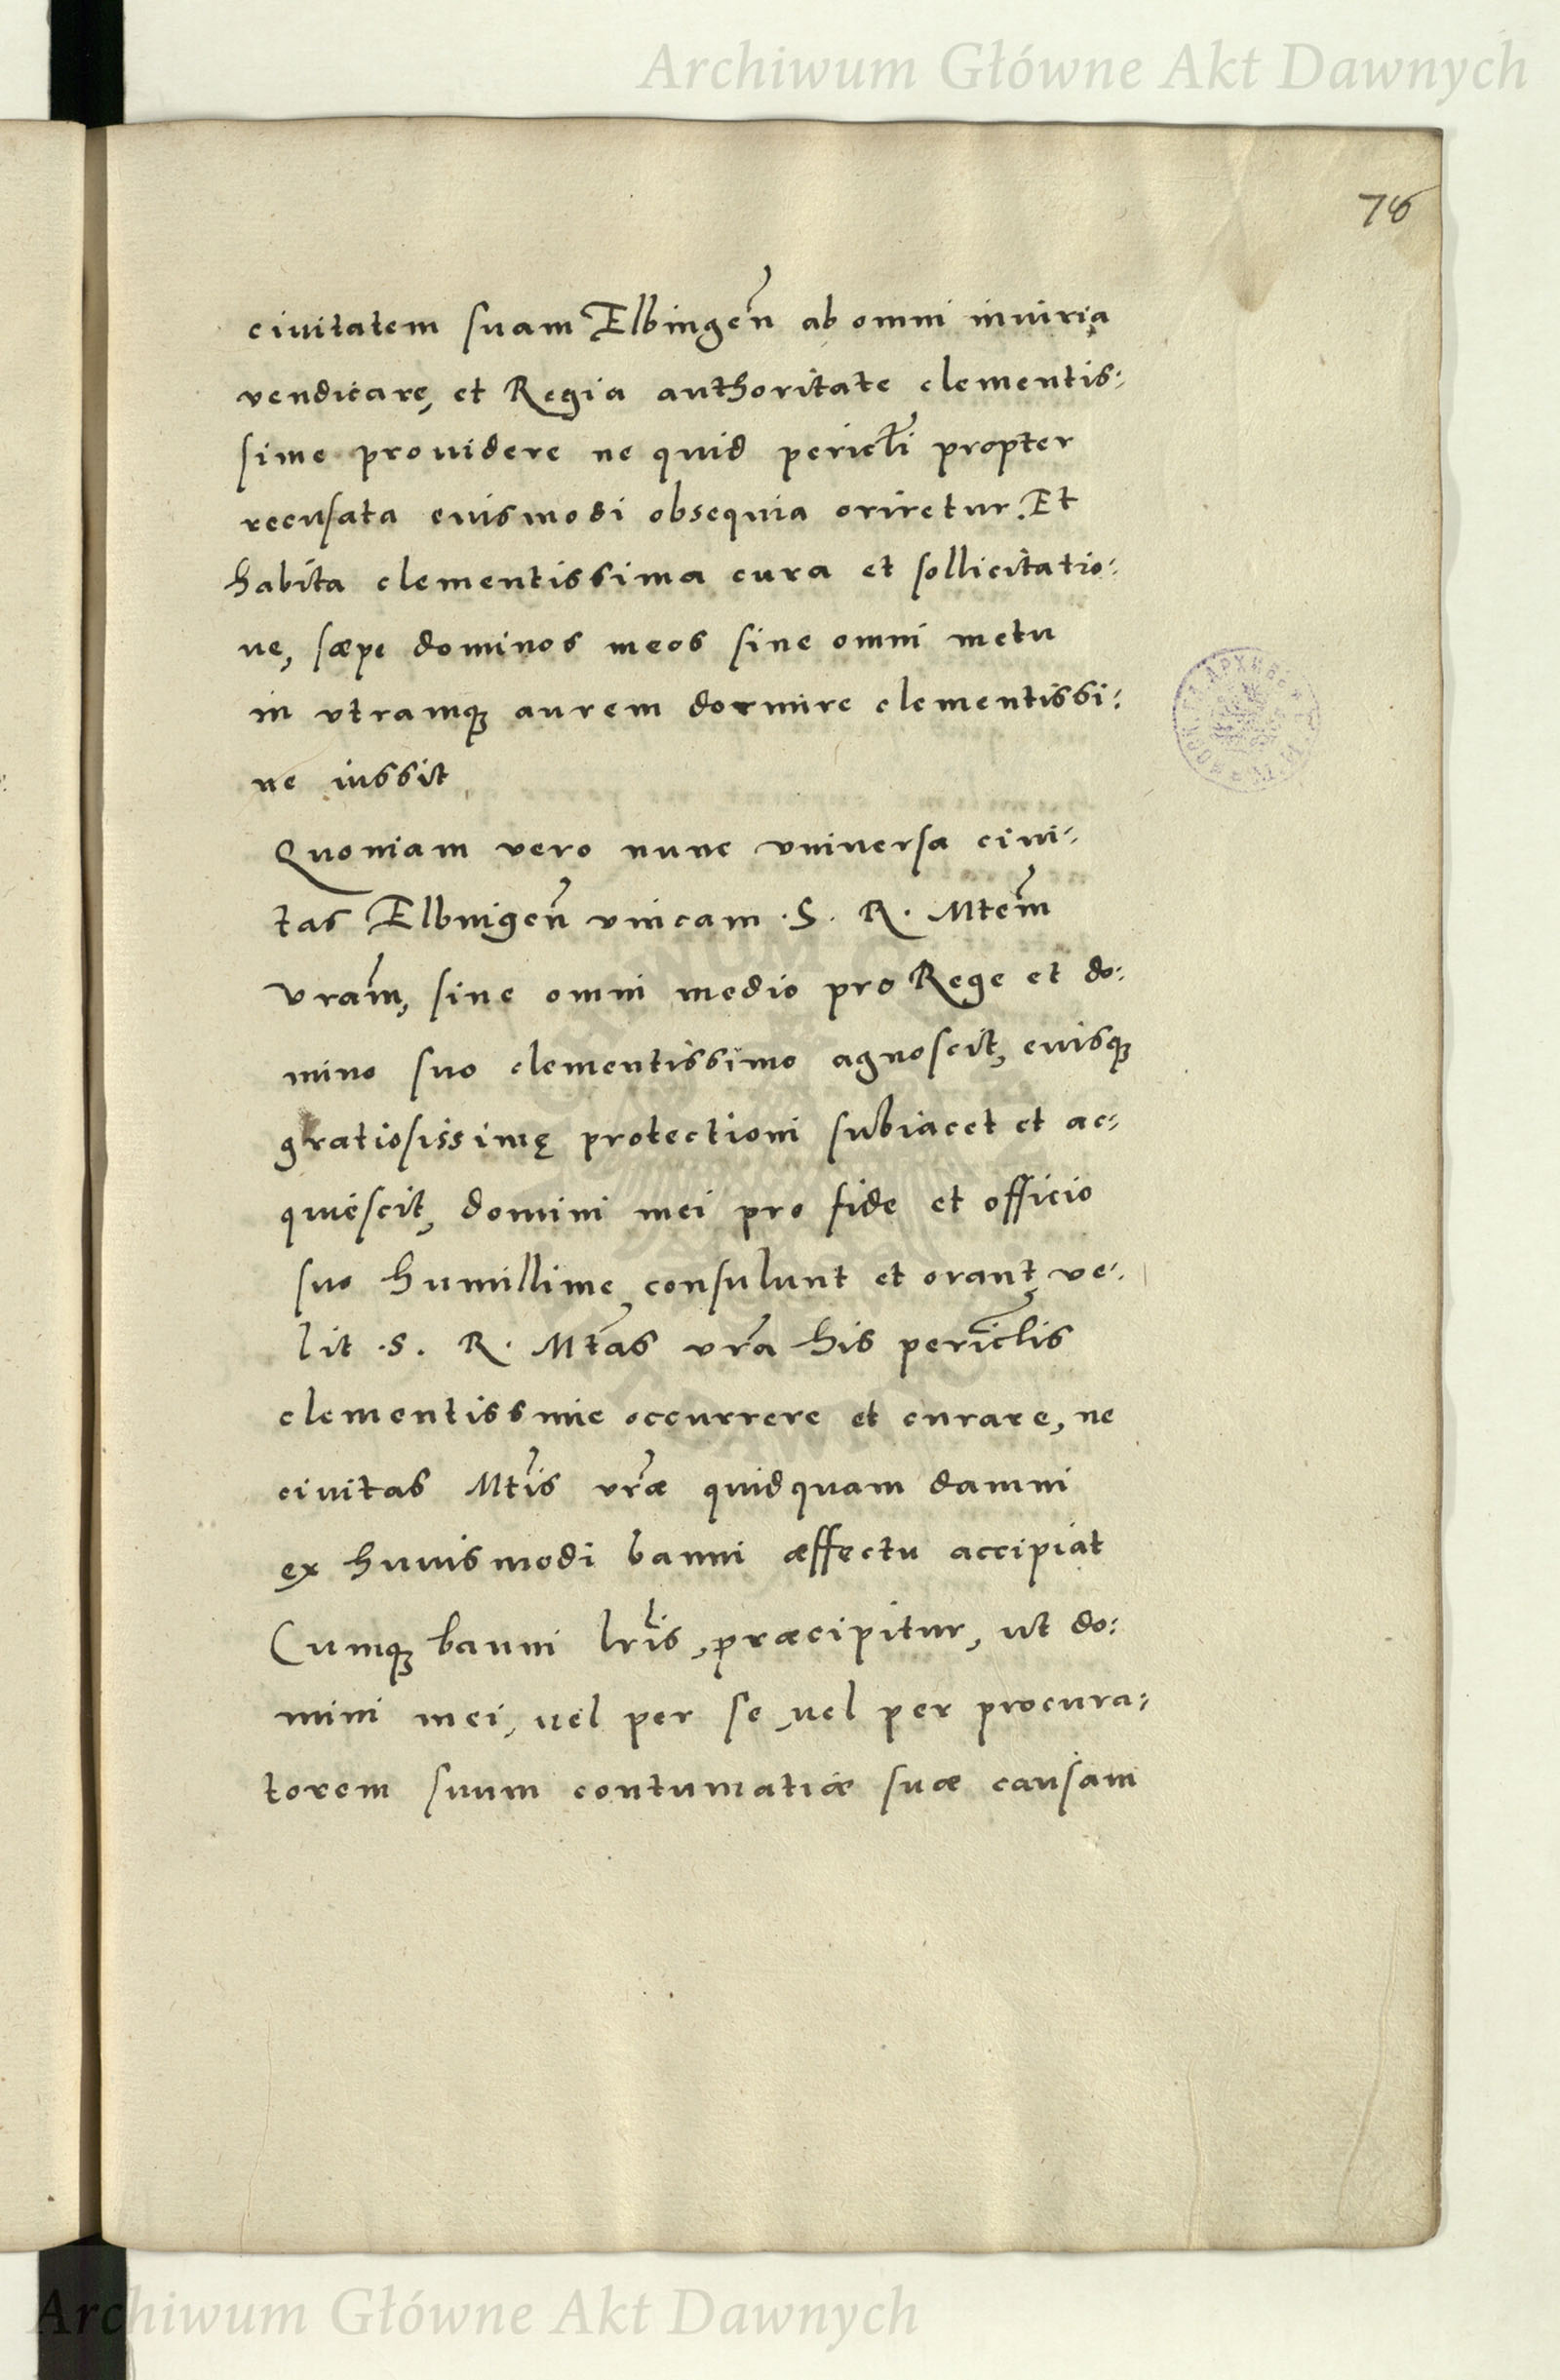 Archiwum Główne Akt Dawnych
78
ciuitatem suam Elbingeñ ab omni iniuria
vendicare, et Regia authoritate clementis:
sime prouidere ne quid pericłi propter
recusata euismodi obsequia oriretur. Et
habita clementissima cura et sollicitatio:
ne, sæpe dominos meos sine omni metu
in vtramqꝫ aurem dormire clementissi:
me iussit
Quoniam vero nunc vniuersa ciui:
tas Elbingeñ vnicam .S. R. Mtem̃
vram̃, sine omni medio pro Rege et do:
mino suo clementissimo agnoscit, euisqꝫ
gratiosissimę protectioni subiacet et ac:
quiescit, domini mei pro fide et officio
suo humillime, consulunt et orant, ve:
lit .S. R. Mtãs vrã his pericłis
clementissime occurrere et curare, ne
ciuitas Mtĩs vræ̃ quidquam damni
ex huiusmodi banni æffectu accipiat
Cumqꝫ banni lrĩs, præcipitur, ut do:
mini mei, uel per se, uel per procura:
torem suum contumatiæ suæ causam
Archiwum Główne Akt Dawnych